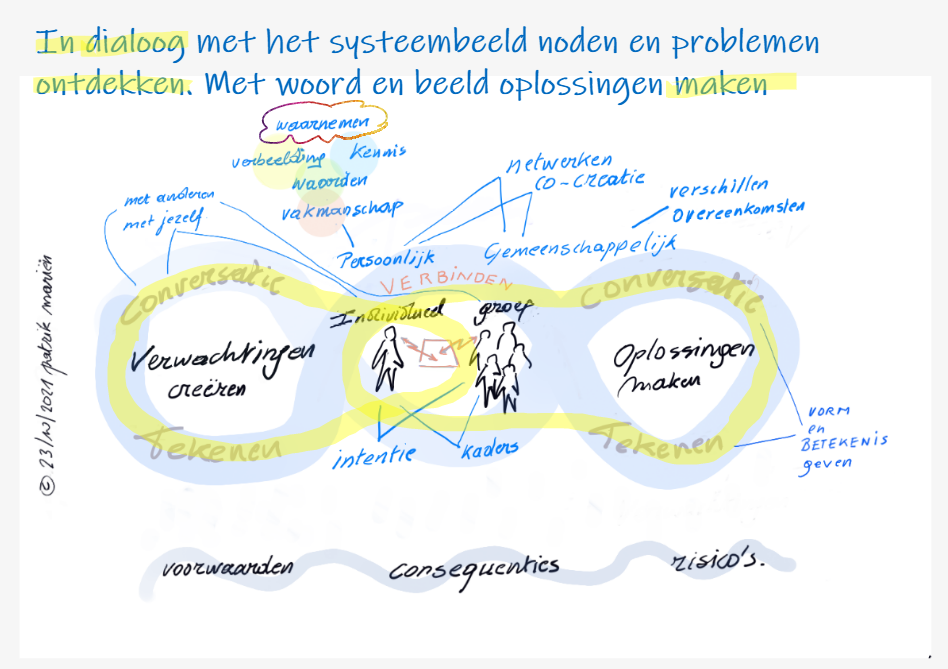 In dialoog met het systeembeeld noden en problemen
ontdekken. Met woord en beeld oplossingen maken
waarnemen
verbeelding
kennis
waarden
vakmanschap
met anderen
met jezelf
netwerken
co-creatie
verschillen
overeenkomsten
Persoonlijk
Gemeenschappelijk
VERBINDEN
Conversatie
Conversatie
Individueel
groep
Verwachtingen
creëren
Oplossingen
maken
Tekenen
Tekenen
intentie
kaders
VORM
en
BETEKENIS
geven
© 23/10/2021 patrik mariën
voorwaarden
consequenties
risico's.